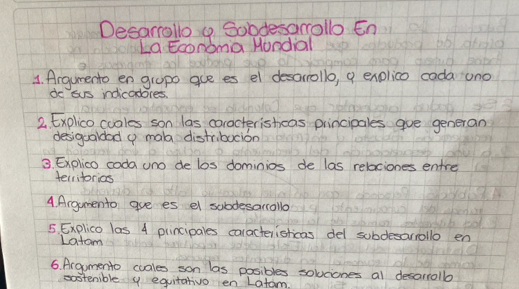 Desarrollo y Subdesarrollo En
La Economia Mundial
1. Argumento en grupo que es el desarrollo, y explico cada uno
de sus indicadores.
2. Explico cuales son las caracteristicas principales que generan
desigualdad y mala distribucion
3. Explico cada uno de los dominios de las relaciones entre
territorios
4. Argumento que es el subdesarrollo
5. Explico las 4 principales caracteristicas del subdesarrollo en
Latam
6. Argumento cuales son las posibles soluciones al desarrollo
sostenible y equitativo en Latam.